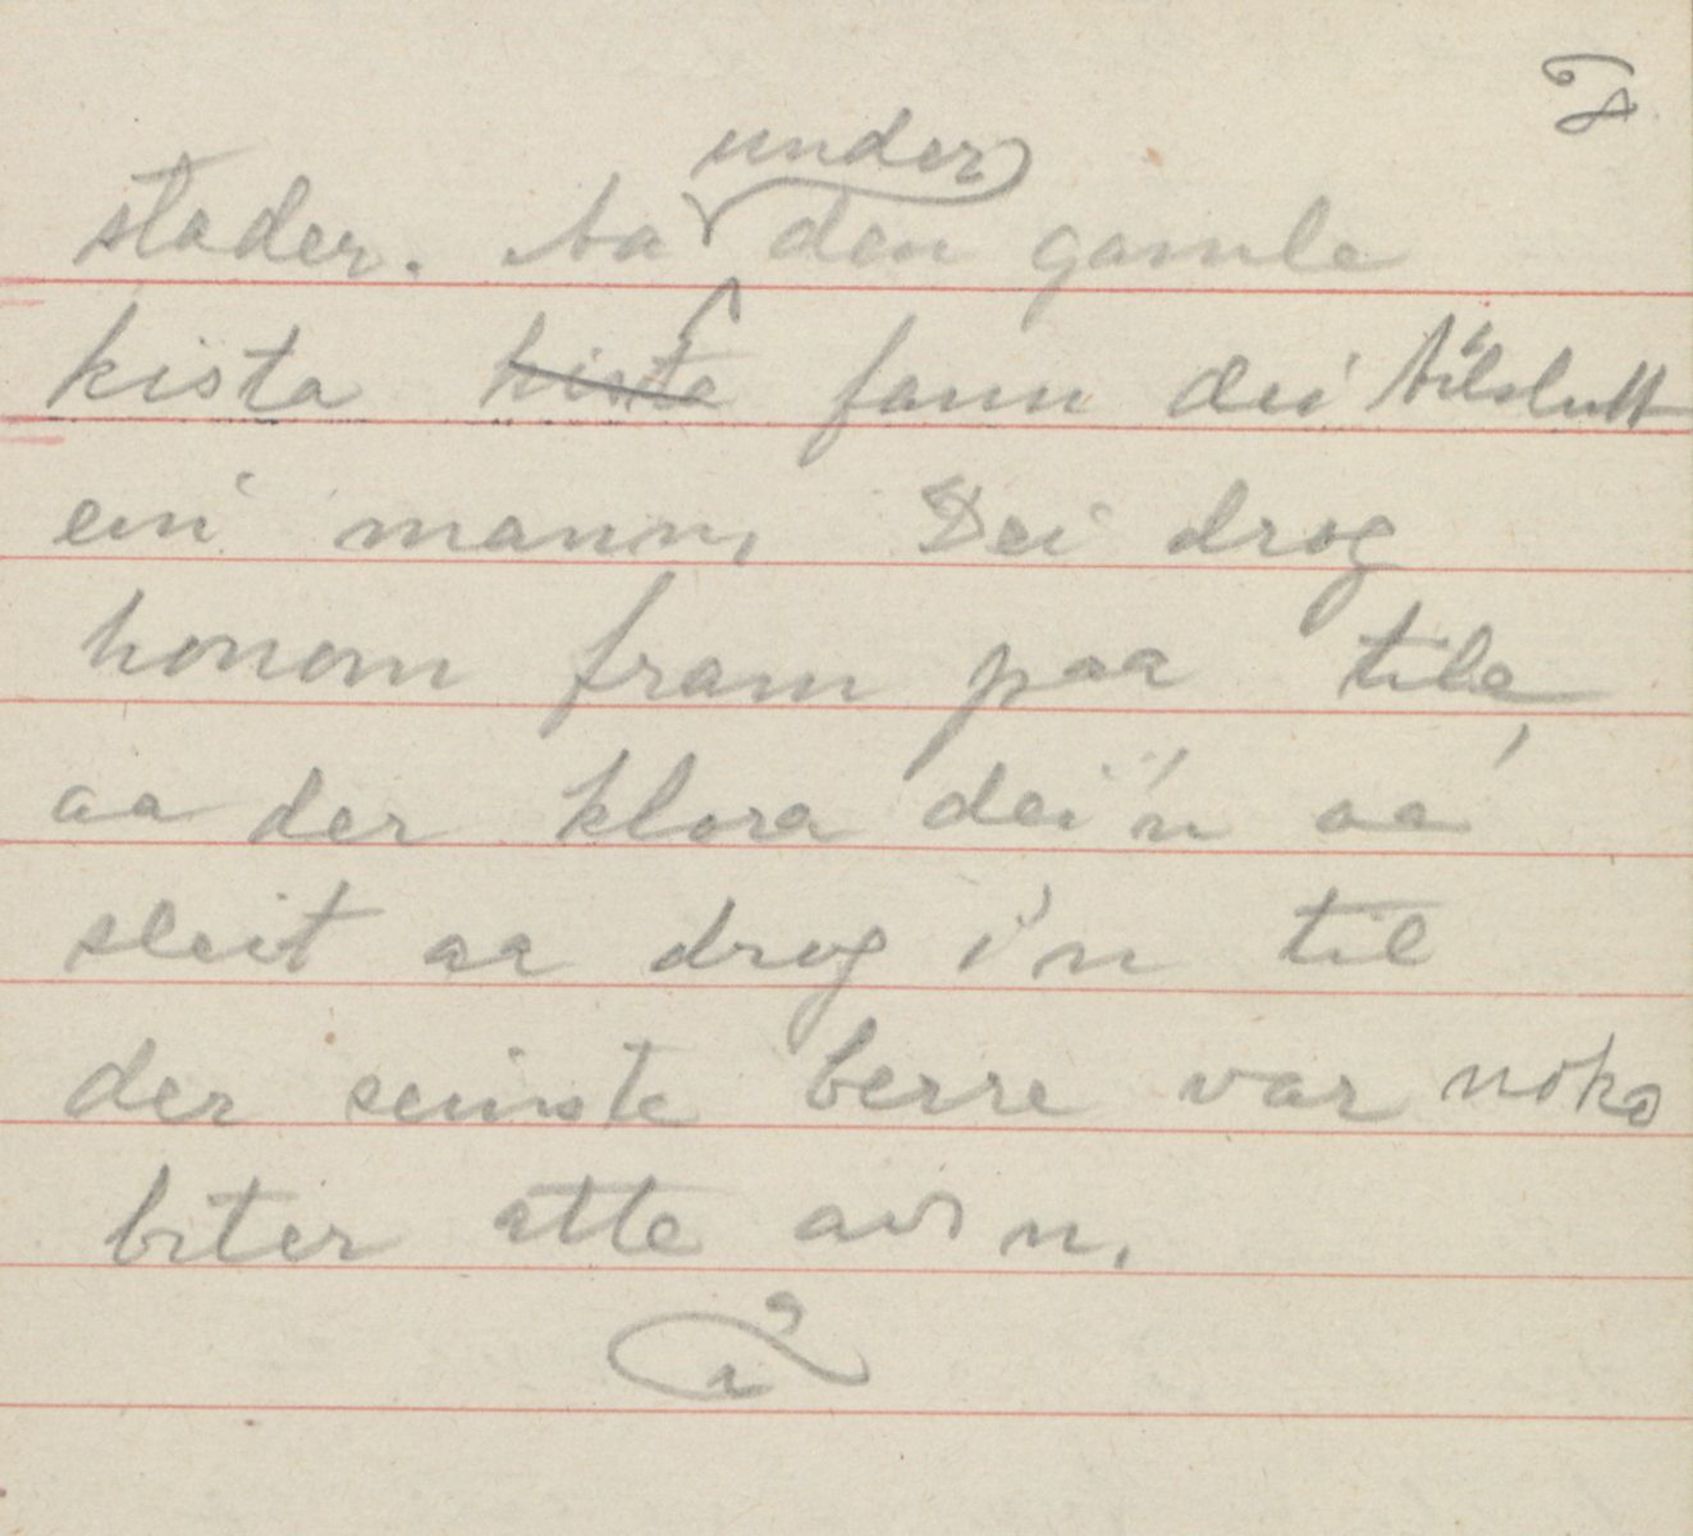 under
stader. Aa den gamle
kista kista fann dei tilslutt
ein mann. Dei drog
honom fram paa tile,
aa der klora dei'n aa
sleit aa drog i'n til
der seinste berre var noko
biter atte av'n.